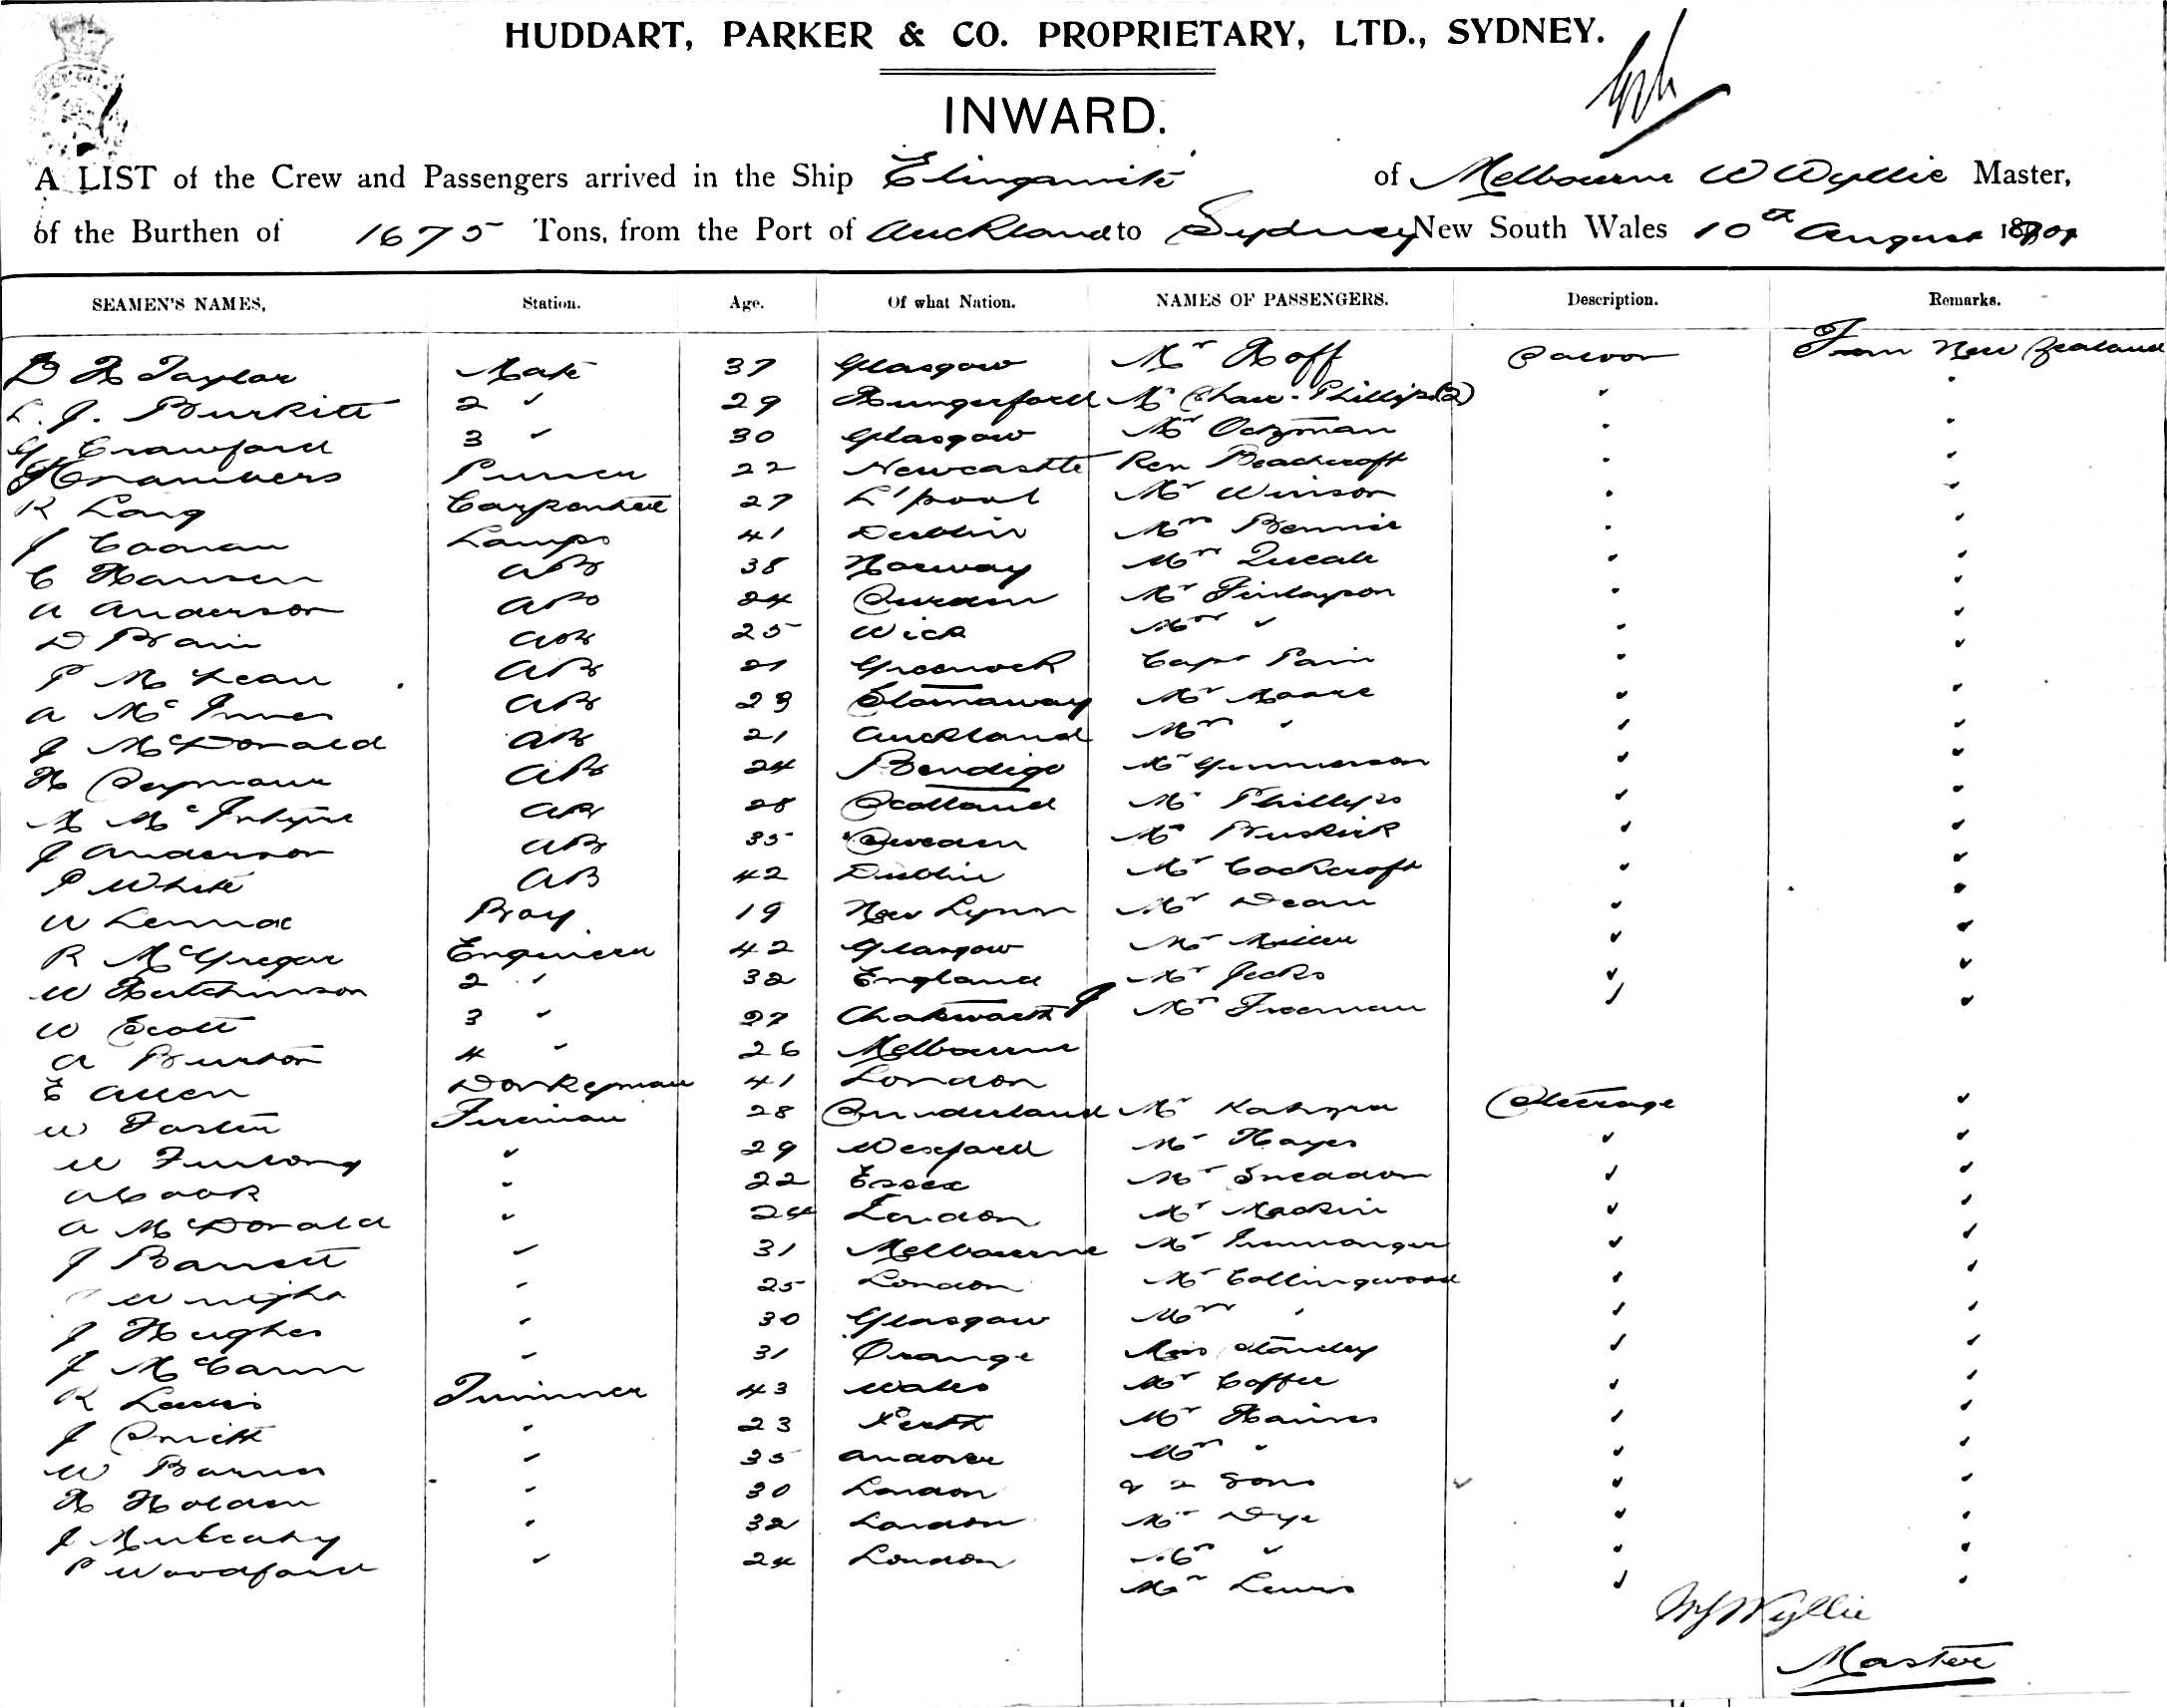 HUDDART, PARKER & CO. PROPRIETARY, LTD., SYDNEY.
INWARD.
A LIST of the Crew and Passengers arrived in the Ship Elingamite of Melbourne W Wyllie Master,
of the Burthen of 1675 Tons, from the Port of Auckland to Sydney New South Wales 10th August 1901
SEAMEN'S NAMES, Station. Age. Of what Nation. NAMES OF PASSENGERS. Description. Remarks.
D H Taylor Mate 37 Glasgow Mr Hoff Saloon From New Zealand
L. J. Burkitt 2 " 29 Hungerford Mr Phillips (2) "
G Crawford 3 " 30 Glasgow Mr "
Chambers Purser 22 Newcastle Rev Beachcroft "
R Lang Carpenter 27 L'pool Mr Winson "
J Coonan Lamps 41 Dublin Mrs Bennie "
C Hansen AB 38 Norway Mrs Queale "
A Anderson AB 24 Sweden Mr Finlayson "
D Bain AB 25 Wick Mrs " "
P McLean AB 21 Greenock Capt Pain "
A McInnes AB 23 Stornaway Mr Moore "
J McDonald AB 21 Auckland Mrs " "
H Seymour AB 24 Bendigo Mr Gunnerson "
M McIntyre AB 28 Scotland Mr Phillips "
J Anderson AB 35 Sweden Mr Buskirk "
P White AB 42 Dublin Mr Cockcroft "
W Lennox Boy 19 New Lynn Mr Dean "
R McGregor Engineer 42 Glasgow Mr Miller "
W Hutchinson 2 " 32 England Mr Jecks "
W Scott 3 " 27 Chatsworth Mrs Freeman "
A Burton 4 " 26 Melbourne
E Allen Donkeyman 41 London
W Foster Fireman 28 Sunderland Mr Steerage "
W Furlong " 29 Wexford Mr Hayes "
A Cook " 22 Essex Mr Sneddon "
A McDonald " 24 London Mr Mackin "
J Barrett " 31 Melbourne Mr Ironmonger "
Wright " 25 London Mr Collingwood "
J Hughes " 30 Glasgow Mrs " "
J McCann " 31 Orange Miss Stanley "
R Lewis Trimmer 43 Wales Mr Coffee "
J Smith " 23 Perth Mr Haines "
W Barnes " 35 Andover Mrs " "
H Holden " 30 London & 2 Sons "
J Mulcahy " 32 London Mr Dye "
P Woodford " 24 London Mrs " "
Mrs Lewis "
W Wyllie
Master